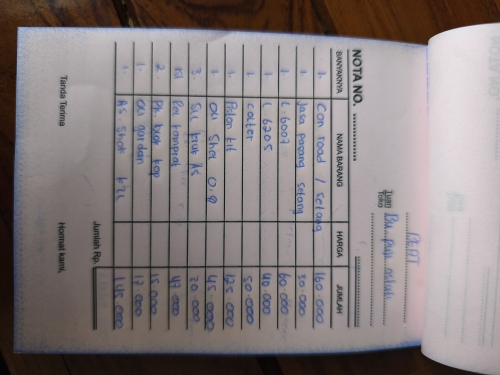 BEAT
NOTA NO. ............
Tuan
Toko
Bu. puji
BANYAKNYA NAMA BARANG HARGA JUMLAH
1. Con road / setang 160.000
1. Jasa pasang setang 30.000
1. L. 6007 60.000
1. L 6205 40.000
1. couter 50.000
1. Piston kit 125.000
1. Oli Shel 0,8 45.000
3. Sil 20.000
Per kampas 47.000
2. Pk 15.000
1. Oli gardan 17.000
1. AS Shok 145.000
Jumlah Rp.
Tanda Terima Hormat kami,